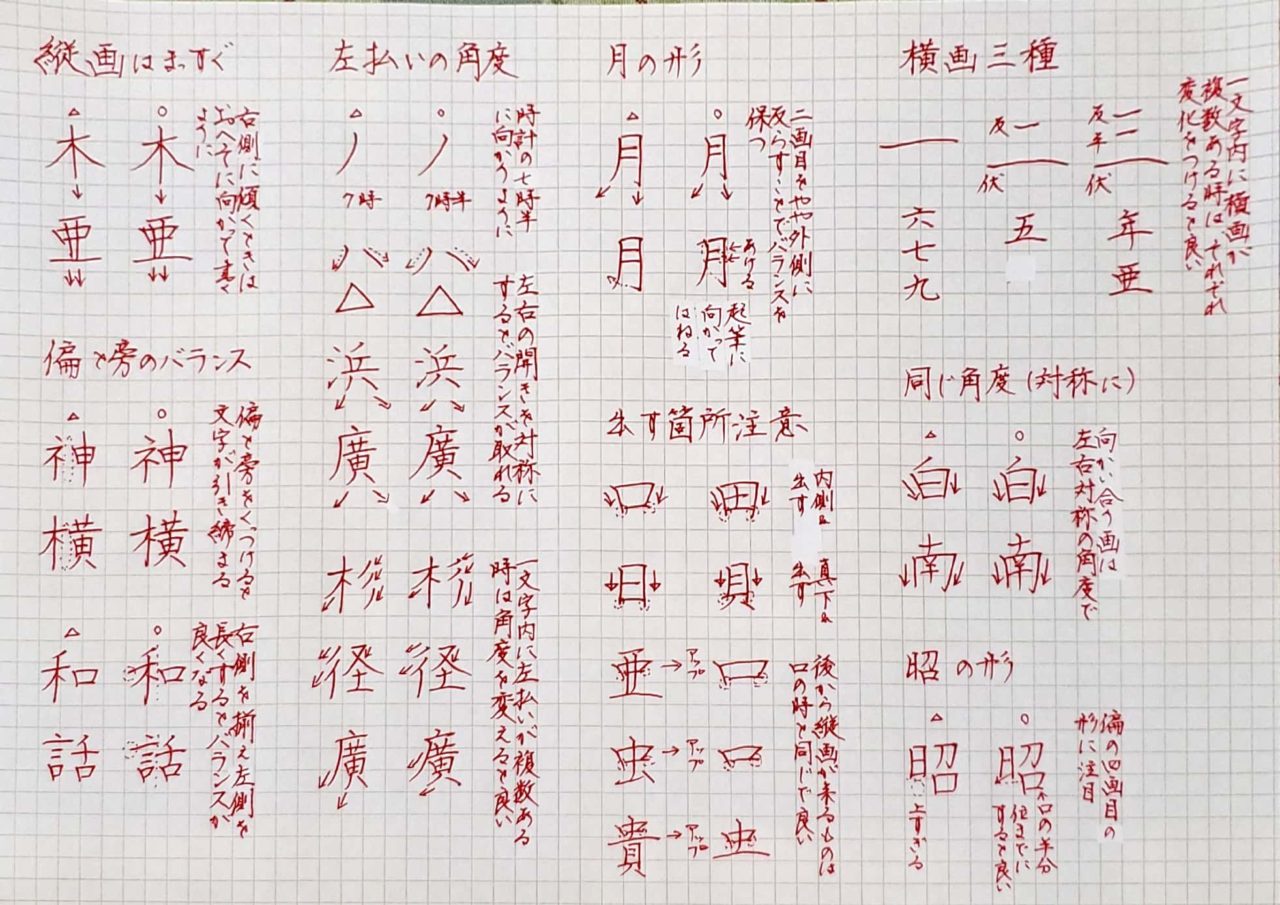 縦画はまっすぐ
△ ○
木 木
亜 亜
右側に傾くときは
おへそに向かって書く
ように
偏と旁のバランス
△ ○
神 神
横 横
偏と旁をくっつけると
文字が引き締まる
△ ○
和 和
話 話
右側を揃え左側を
長くするとバランスが
良くなる
左払いの角度
△ ○
ノ ノ
7時 7時半
時計の七時半
に向かうように
ハ ハ
△ △
浜 浜
廣 廣
左右の開きを対称に
するとバランスが取れる
杉 杉
径 径
廣 廣
一文字内に左払いが複数ある
時は角度を変えると良い
月の形
△ ○
月 月
月 月
二画目をやや外側に
反らすことでバランスを
保つ
あける
起筆に
向かって
はねる
出す箇所注意
口 田
内側は
出す
日 貝
真下は
出す
亜→アップ 口
虫→アップ 口
貴→アップ 虫
後から縦画が来るものは
口の時と同じで良い
横画三種
一文字内に横画が
複数ある時はそれぞれ
変化をつけると良い
一
反 一
伏
反 一
平 一
伏
六 五 年
七 亜
九
同じ角度(対称に)
△ ○
白 白
南 南
向かい合う画は
左右対称の角度で
昭の形
△ ○
昭 昭
上すぎる
口の半分
位までに
すると良い
偏の四画目の
形に注目